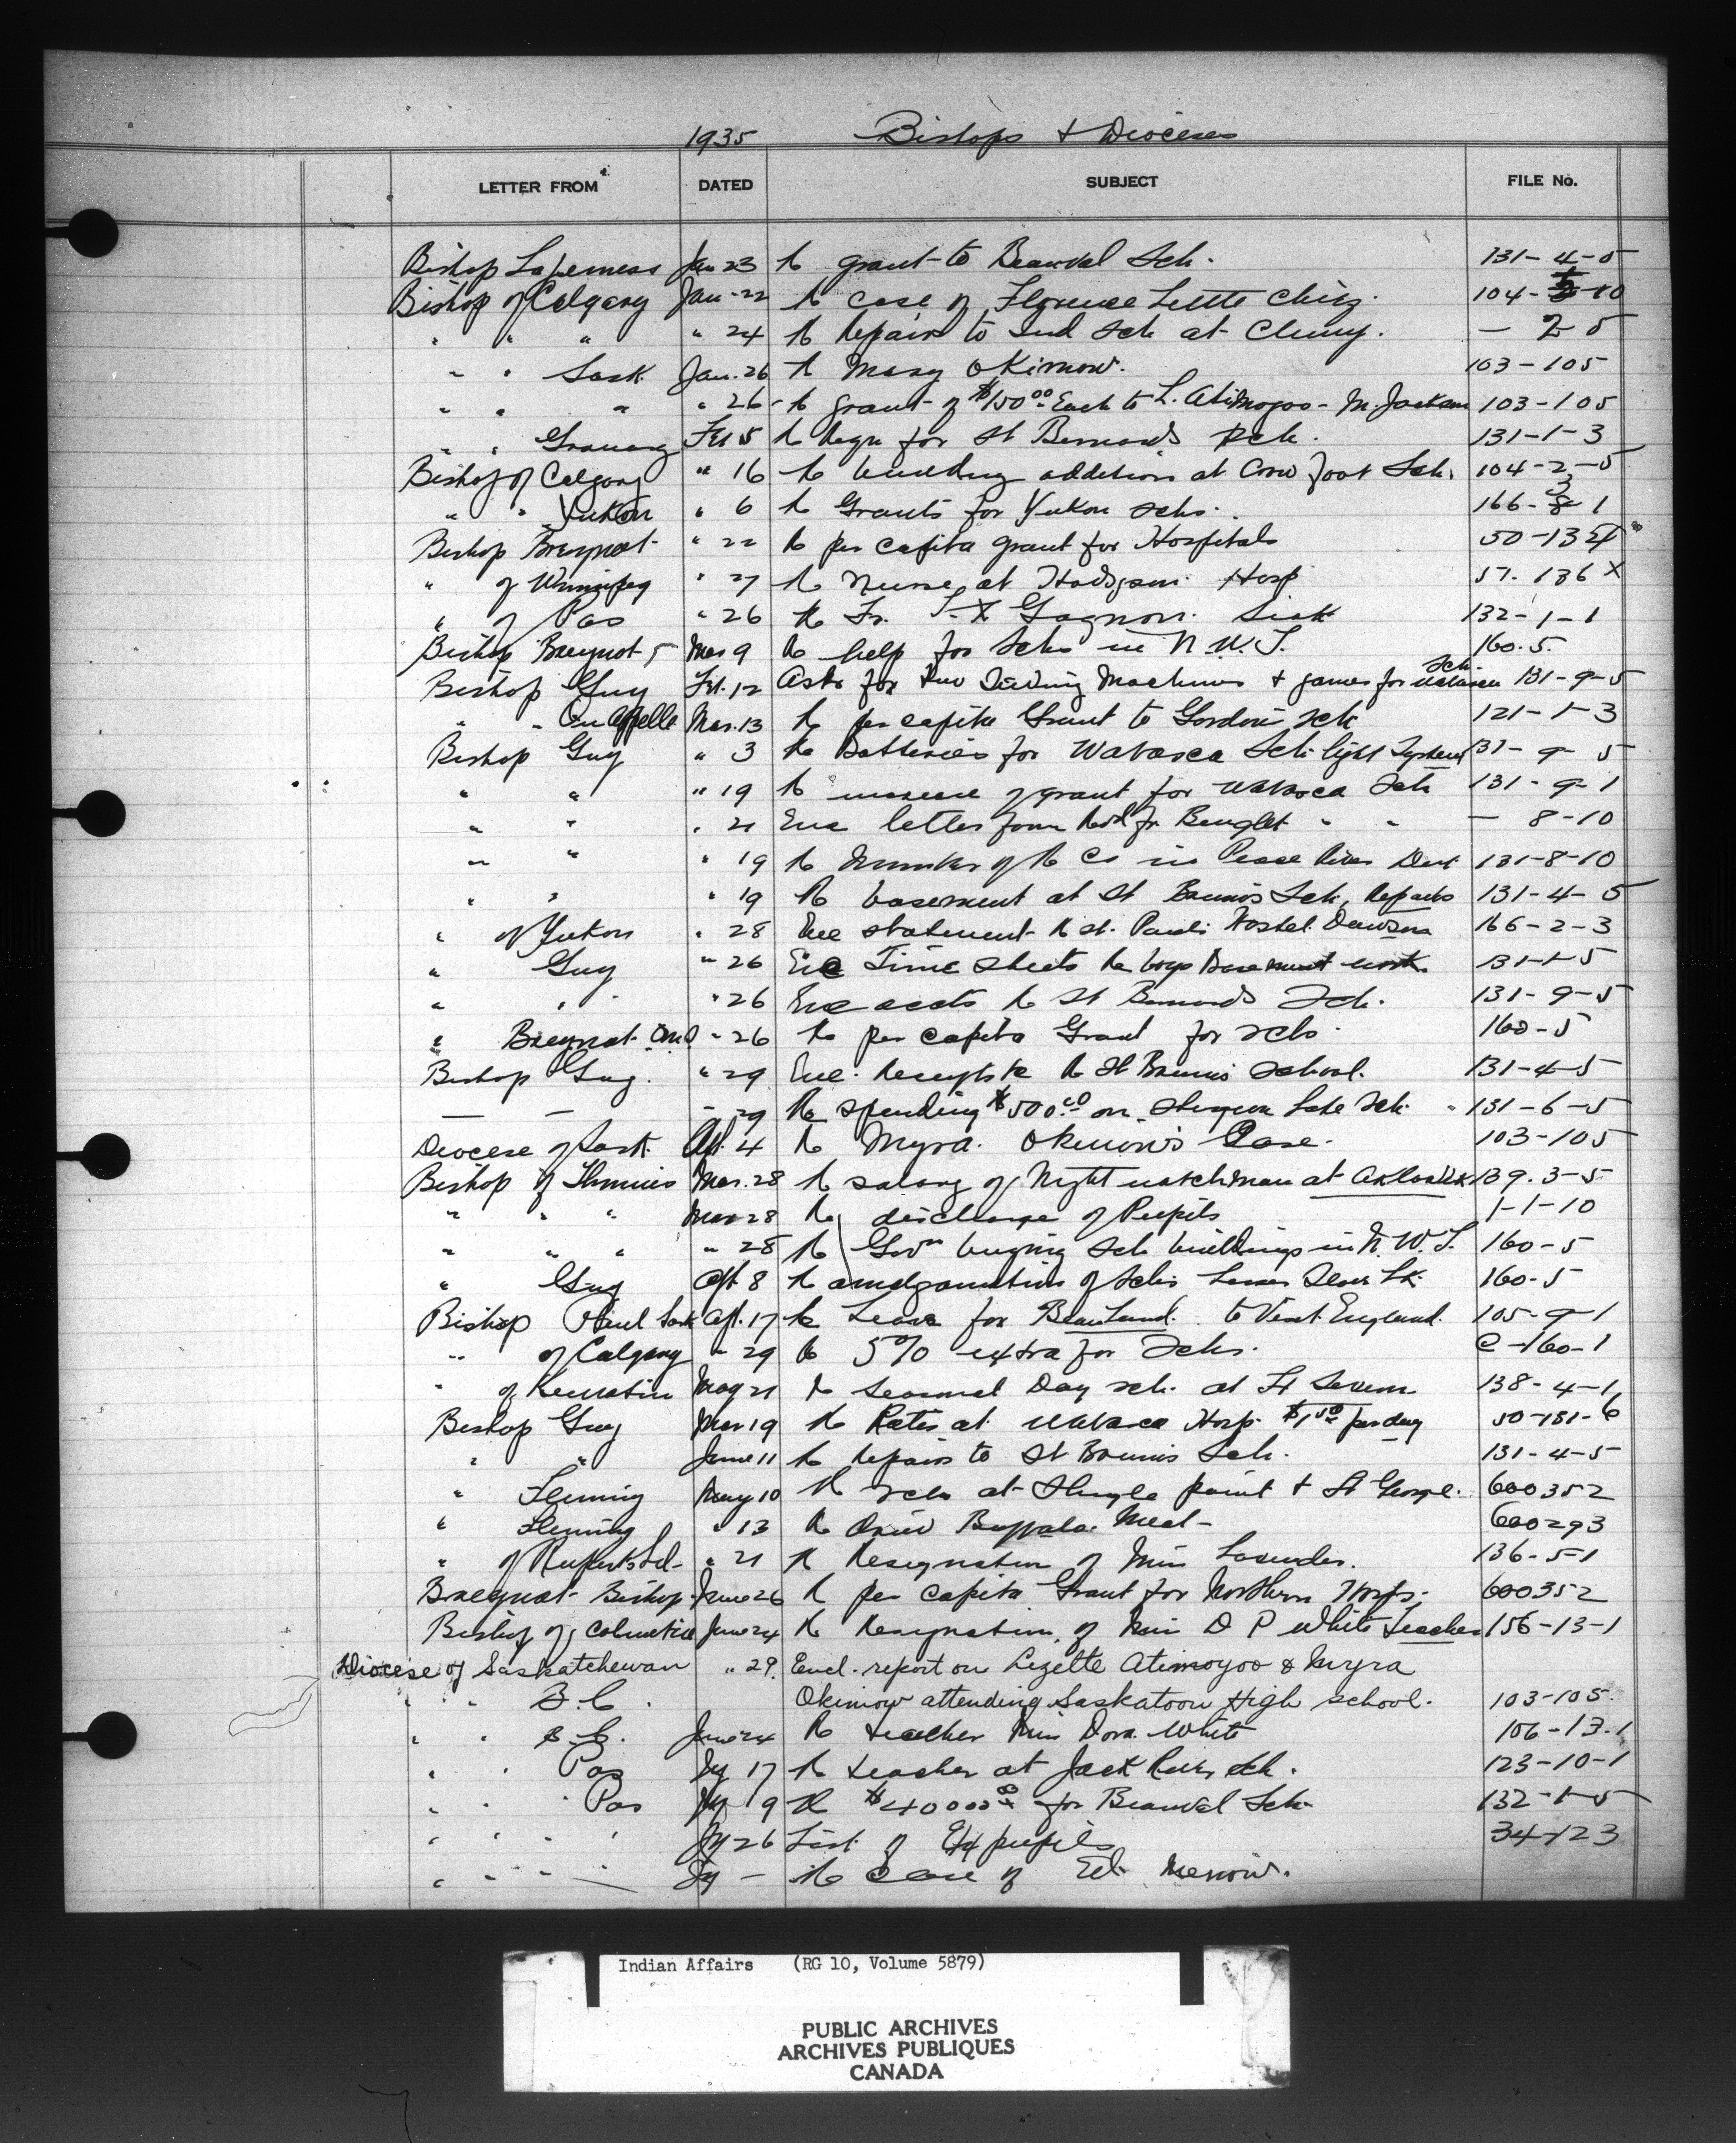 1935 Bishops & Dioceses
LETTER FROM DATED SUBJECT FILE No.
Bishop Jan 23 Re grant to Beauval Sch. 131-4-5
Bishop of Calgary Jan-22 Re case of Florence Little Chief. 104- -10
" " " " 24 Re Repairs to Ind Sch at Cluny. — 2 5
" " Sask. Jan. 26 Re Mary Okimow. 103-105
" " " " 26 Re grant of $150.00 Each to L. Atimoyoo - M. Jackson 103-105
" " Grouard Feb 5 Re for St Bernards Sch. 131-1-3
Bishop of Calgary " 16 Re building addition at Crow foot Sch. 104-2-5
" " Yukon " 6 Re Grants for Yukon Schs. 166-3-1
Bishop Breynat " 22 Re per capita grant for Hospitals 50-13
" of Winnipeg " 27 Re Nurse at Hodgson Hosp 57-136 X
" of Pas " 26 Re Fr. Gagnon. 132-1-1
Bishop Breynat Mar 9 Re help for Schs in N.W.T. 160-5.
Bishop Guy Feb. 12 Asks for two Sewing Machines & games for Wabasca Sch 131-9-5
" " Qu'Appelle Mar. 13 Re per capita Grant to Gordon's Sch 121-1-3
Bishop Guy " 3 Re Batteries for Wabasca Sch light System 131-9-5
" " " 19 Re increase of grant for Wabasca Sch 131-9-1
" " " 21 Enc letter from " " — 8-10
" " " 19 Re Number of R Cs in Peace River Dist 131-8-10
" " " 19 Re basement at St Brunos Sch, Repairs 131-4-5
" of Yukon " 28 Enc statement Re St. Pauls Hostel. Dawson 166-2-3
" Guy " 26 Enc Time sheets Re boys Basement work. 131-1-5
" " " 26 Enc accts Re St Bernards Sch. 131-9-5
" Breynat " 26 Re per capita Grant for schs. 160-5
Bishop Guy. " 29 Enc. Receipts Re St Brunos School. 131-4-5
— — " 29 Re spending $500.00 on Sturgeon Lake Sch. " 131-6-5
Diocese of Sask. Ap. 4 Re Myra Okimow's Case. 103-105
Bishop of Mar. 28 Re salary of Night watchman at Aklavik 139.3-5
" " " Mar 28 Re discharge of Pupils 1-1-10
" " " " 28 Re Govn buying Sch buildings in N.W.T. 160-5
" Guy Ap. 8 Re amalgamation of Schs Lesser Slave Lk. 160-5
Bishop Sask Ap. 17 Re Leave for to Visit England. 105-9-1
" of Calgary " 29 Re 5% extra for Schs. C-160-1
" of Keewatin May 21 Re Seasonal Day sch. at Ft Severn 138-4-1
Bishop Guy Mar 19 Re Rates at Wabasca Hosp $1.50 per day 50-131-6
" " June 11 Re Repairs to St Brunos Sch. 131-4-5
" Fleming May 10 Re Schs at Shingle point & St George. 600352
" Fleming " 13 Re Dried Buffalo Meat 600293
" of Ruperts Ld " 21 Re Resignation of Miss Lavender. 136-5-1
Breynat Bishop June 26 Re per capita Grant for Northern Hosps. 600352
Bishop of Columbia June 24 Re Resignation of Miss D P White Teacher 156-13-1
Diocese of Saskatchewan " 29. Encl. report on Lizette Atimoyoo & Myra
" " B.C. Okimow attending Saskatoon High school. 103-105.
" " B.C. June 24 Re teacher Miss Dora White 106-13-1
" " Pas Jy 17 Re teacher at Jack River Sch. 123-10-1
" " Pas Jy 9 Re for Beauval Sch. 132-1-5
" " " " Jy 26 List of Ex pupils 34-123
" " " Jy — Re Case of Ed.
Indian Affairs (RG 10, Volume 5879)
PUBLIC ARCHIVES
ARCHIVES PUBLIQUES
CANADA